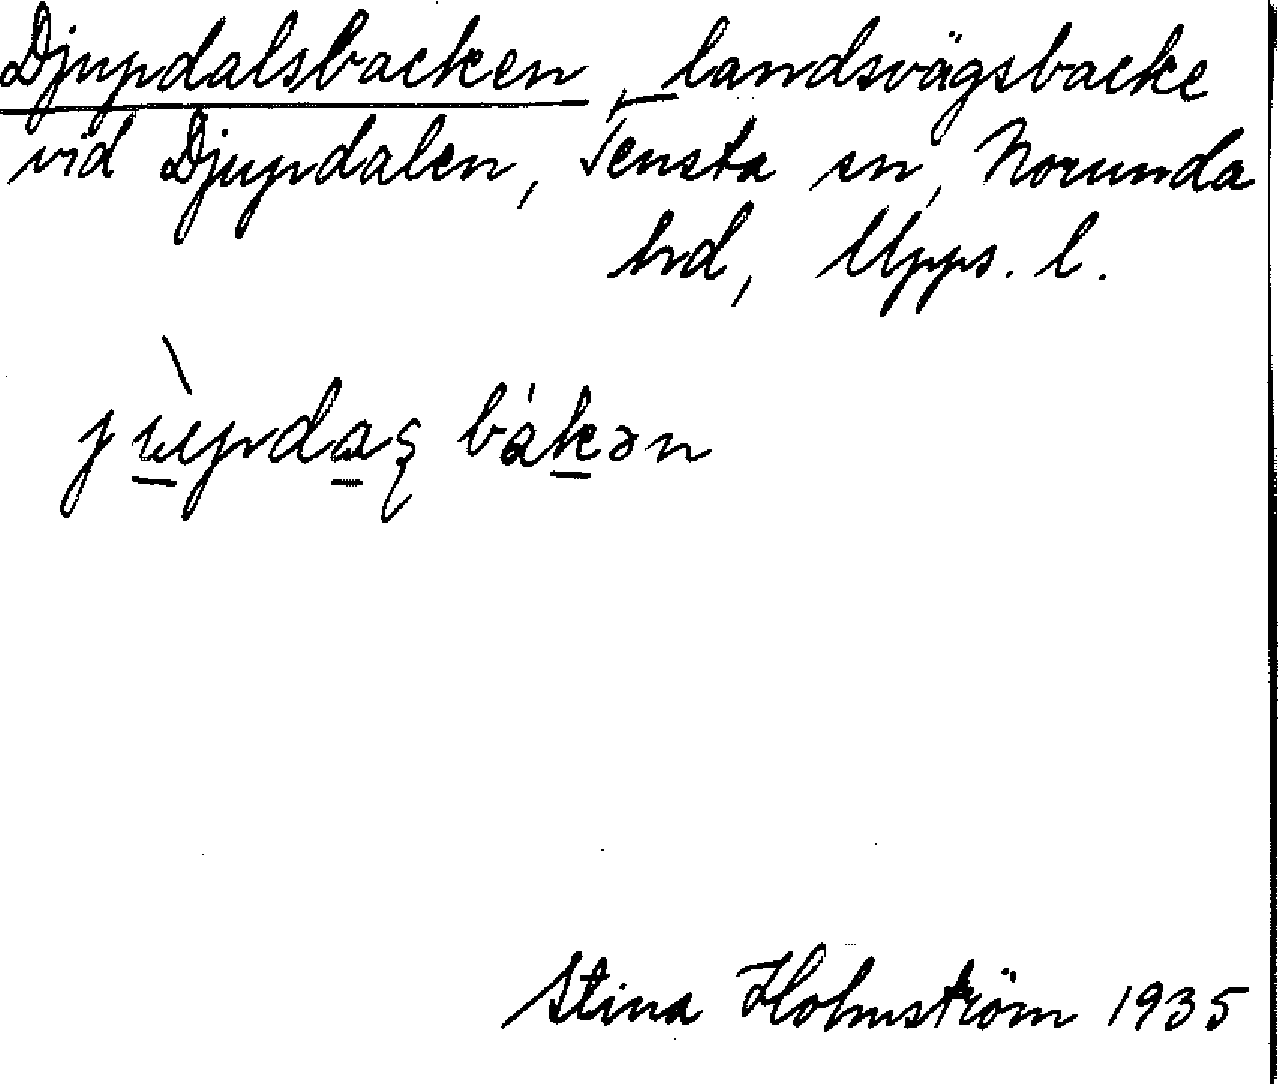 Djupdalsbacken, landsvägsbacke
vid Djupdalen, Tensta sn, Norunda
hd, Upps. l.
jùpdaʂ bákən
Stina Holmström 1935